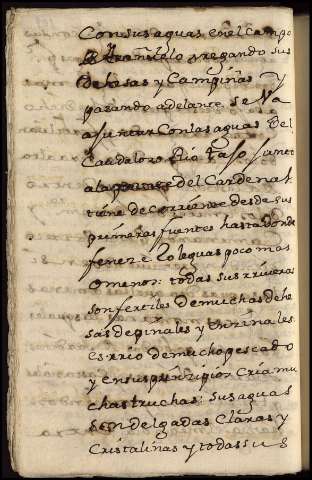 Con sus aguas, en el campo
trañuelo y regando sus
dehesas y Campiñas y
pasando adelante se va
a Juntar Con las aguas del
Caudaloso Rio taJo Junto
a la puente del Cardenal
tiene de corriente desde sus
primeras fuentes hasta donde
feneze leguas poco mas
o menos: todas sus rriueras
son fertiles de muchas dehe
sas de pinales y enzinales
es rrio de mucho pescado
y en su prinzipio Cria mu
chas truchas: sus aguas
son delgadas Claras y
Cristalinas y todas su s